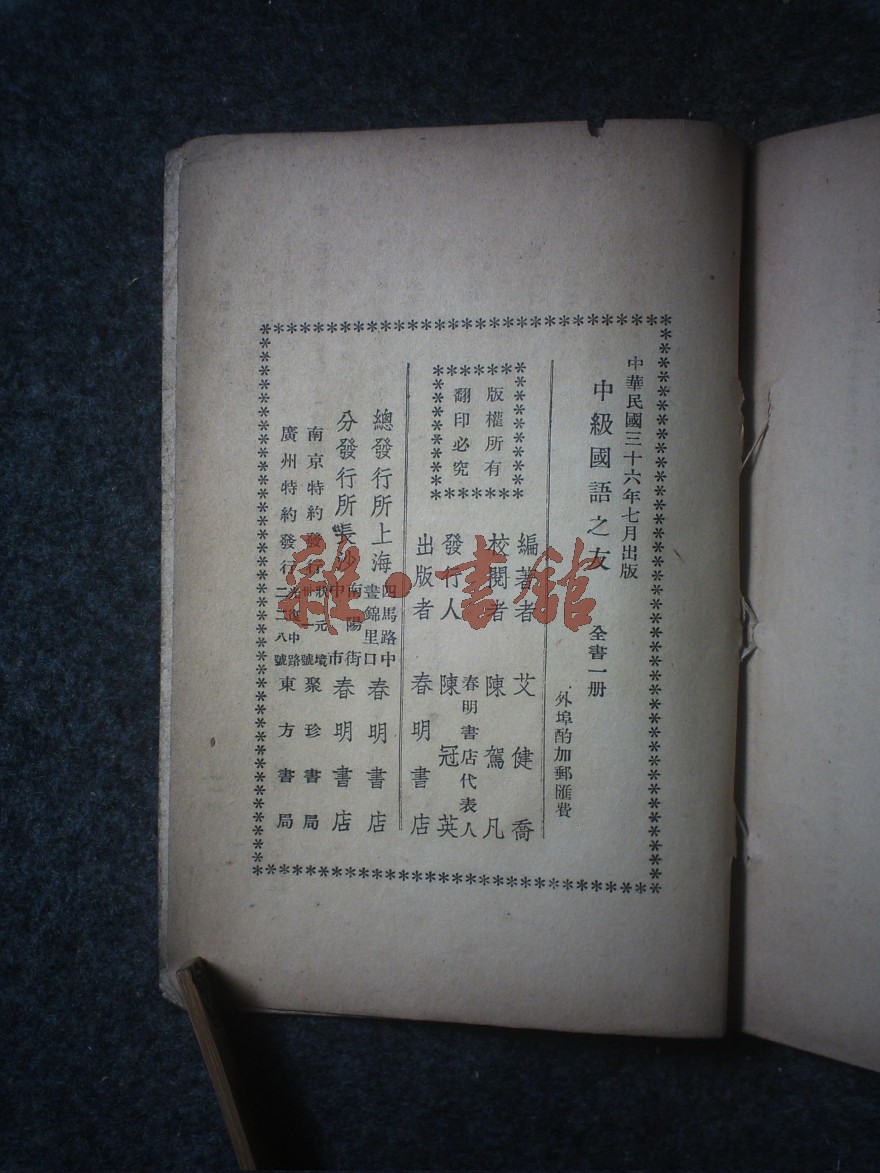 中華民國三十六年七月出版
中級國語之友 全書一册
外埠酌加郵匯費
版權所有
翻印必究
編著者 艾健喬
校閱者 陳駕凡
發行人 春明書店代表人 陳冠英
出版者 春明書店
總發行所 上海 四馬路中 晝錦里口 春明書店
分發行所 長沙 南陽街 中市 春明書店
南京特約發行 狀元境 卅一號 聚珍書局
廣州特約發行 光復中路 二二八號 東方書局
雜·書館